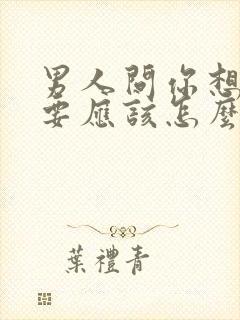 男人問你想
要應該怎麼
葉禮青